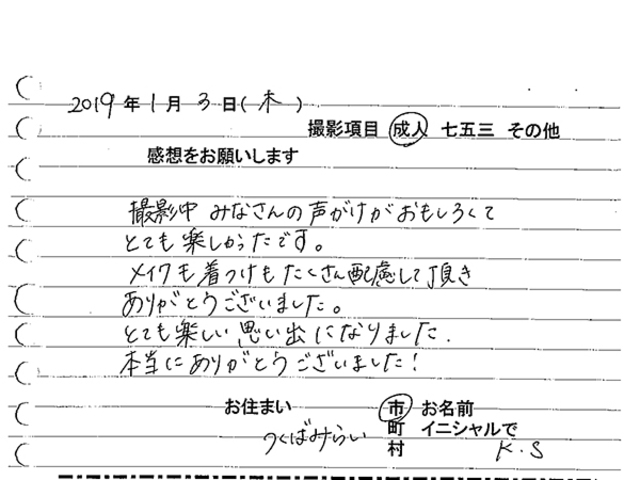 2019年1月3日(木)
撮影項目 成人 七五三 その他
感想をお願いします
撮影中 みなさんの声がけがおもしろくて
とても楽しかったです。
メイクも着つけもたくさん配慮して頂き
ありがとうございました。
とても楽しい思い出になりました.
本当にありがとうございました!
お住まい 市 お名前
つくばみらい 町 イニシャルで
村 K.S